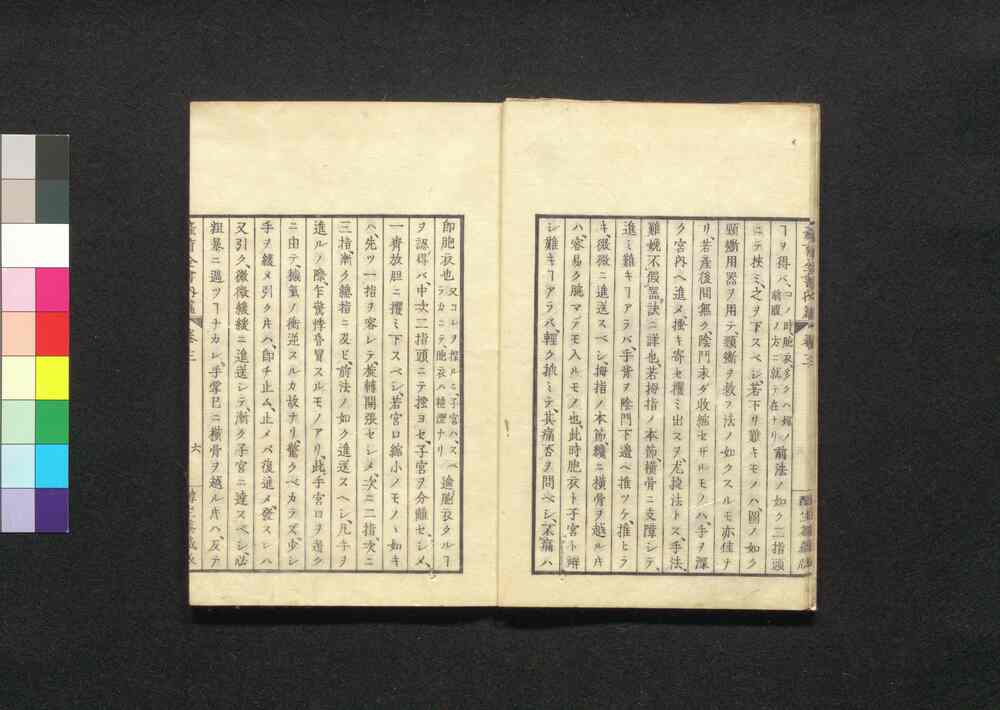 ヿヲ得ベ、コノ時胞衣多クハ媚ノ前腹ノ方ニ就テ在ナリ前法ノ如ク二指頭
ニテ挾ミ、之ヲ下スベシ、若下リ難キモノハ、圖ノ如ク
頸嫰用器ヲ用テ、頸嫰ヲ救ヲ法ノ如クスルモ亦佳ナ
リ、若産後間無ク、陰門未ダ收縮セザルモノハ、手ヲ深
ク宮内ヘ進メ、搔キ寄セ攫ミ出スヲ尤捷法トス、手法、
難娩不假器訣ニ詳也、若拇指ノ本節、橫骨ニ支障シテ、
進ミ難キヿアラバ、手背ヲ陰門下邊ヘ推ツケ、推ヒラ
キ、微微ニ進送スベシ、拇指ノ本節、纔ニ橫骨ヲ越ル片
ハ、容易ク腕マデモ入ルモノ也、此時胞衣ト子宮ト辨
シ難キヿアラバ、輕ク摘ミテ、其痛否ヲ問ベシ、不痛ハ
即胞衣也、又コレヲ捏ルニ、子宮ハ、スベラカニテ、胞衣ハ糙澀ナリ逾胞衣タルヿ
ヲ認得バ、中次二指頭ニテ捏ヨセ、子宮ヲ分離セシメ、
一齊放胆ニ攫ミ下スベシ、若宮口縮小ノモノヽ如キ
ハ、先ツ一指ヲ容レテ、旋轉開張セシメ、次ニ二指、次ニ
三指、漸ク總指ニ及ビ、前法ノ如ク進送スヘシ、凡手ヲ
進ルノ際、乍驚悸昏冒スルモノアリ、此手宮口ヲ過ク
ニ由テ、擁氣ノ衝逆スルカ故ナリ、驚クベカラズ、少シ
手ヲ緩メ引ク片ハ、即チ止ム、止メバ復進メ、發スレハ
又引ク、微微緩緩ニ進送シテ、漸ク子宮ニ達スベシ、必
粗暴ニ過ツヿナカレ、手掌已ニ橫骨ヲ越ル片ハ、反テ
六